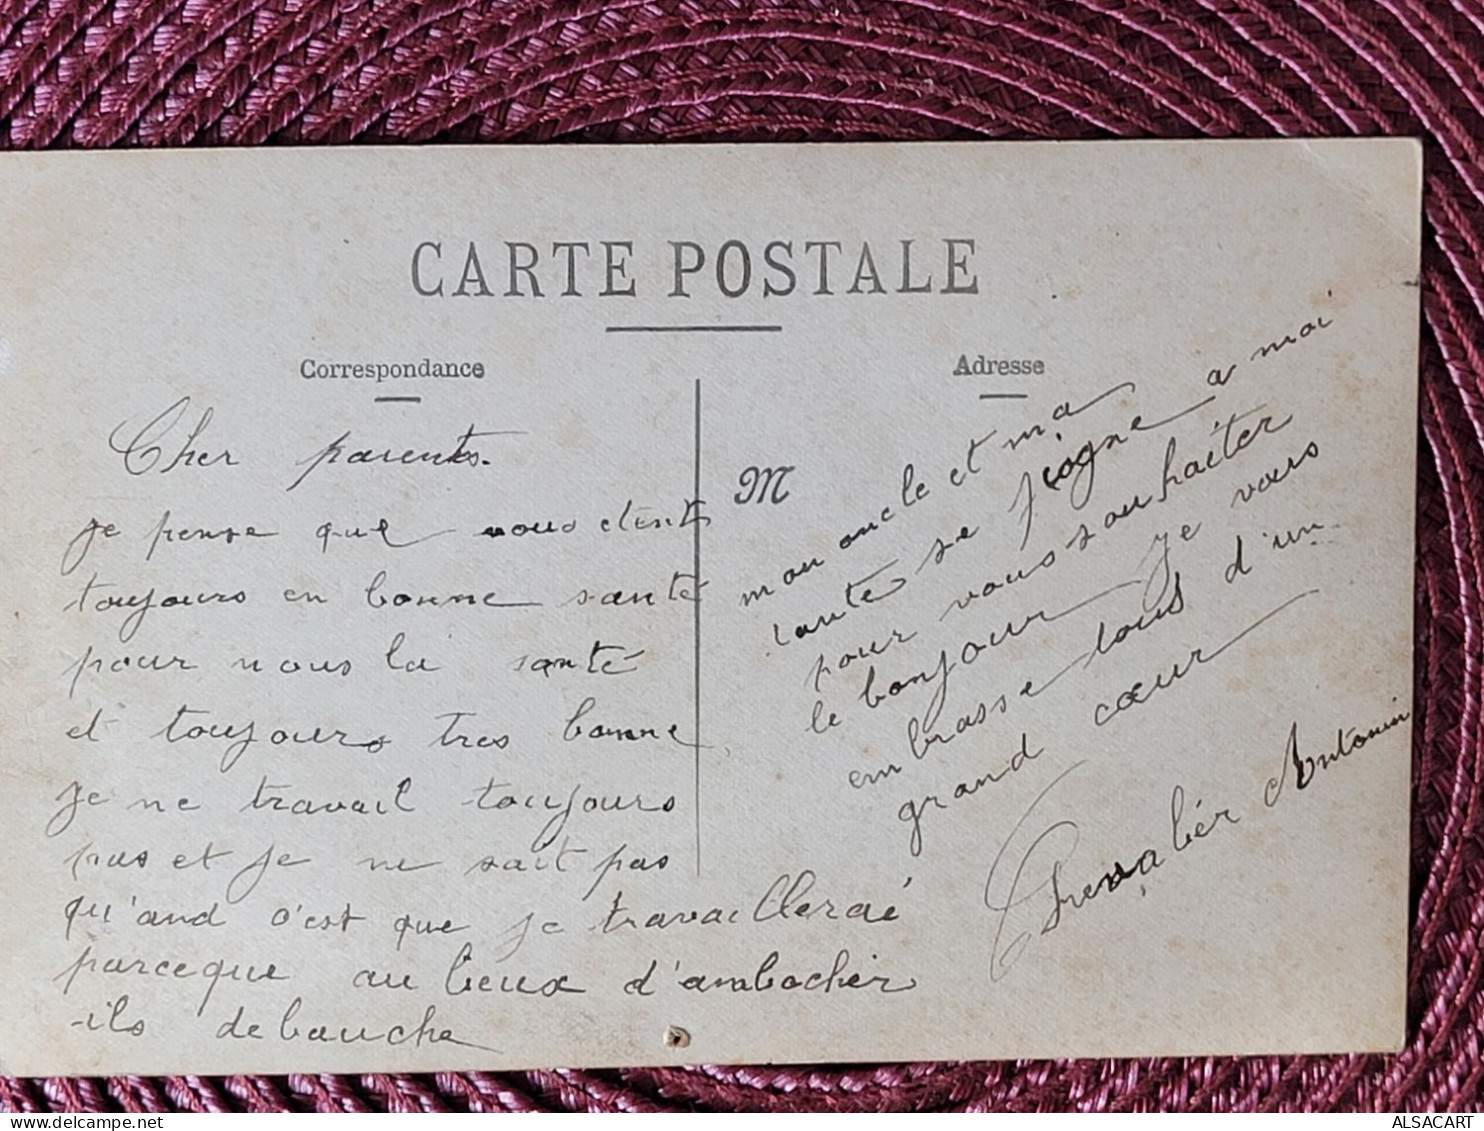 CARTE POSTALE
Correspondance
Cher parents.
je pense que vous etent
toujours en bonne santé
pour nous la santé
et toujours tres bonne
je ne travail toujours
pas et je ne sait pas
qu'and c'est que je travaillerai
parceque au lieux d'ambocher
ils debauche
Adresse
M
mon oncle et ma
tante se joigne a moi
pour vous souhaiter
le bonjour je vous
embrasse tous d'un
grand cœur
Chevalier Antonin
ALSACART